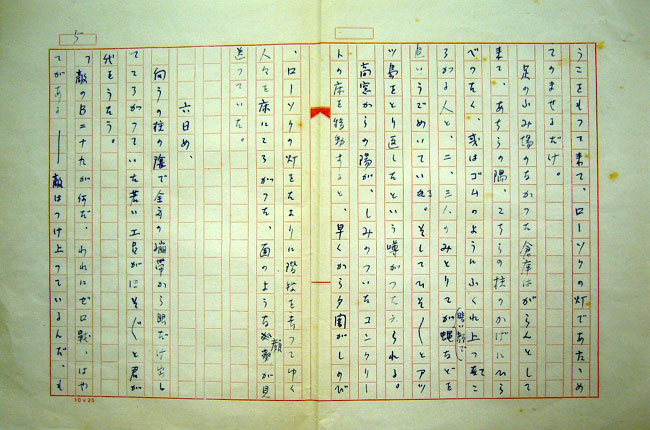 5
うこをもって来て、ローソクの灯であたゝめ
てのませるだけ。
足のふみ場のなかった倉庫はがらんとして
来て、あちらの隅、こちらの柱のかげにひら
べったく、或はゴムのようにふくれ上って
ろがる人と、二、三人のみとりて
が蠅などを
追いうごめいている。そしてひそ〳〵とアッ
ツ島をとり返したという噂がつたえられる。
高窓からの陽が、しみのついたコンクリー
トの床を移動すると、早くから夕闇がしのび
、ローソクの灯をたよりに階段を去ってゆく
人々を床にころがった、面のような顔が見
送っていた。
六日め、
向うの柱の陰で全身の繃帯から眼だけ出し
てころがっていた若い工員がほそ〴〵と君が
代をうたう。
敵のB二十九が何だ、われに零戦、はや
てがある ―― 敵はつけ上っているんだ。も
10×20